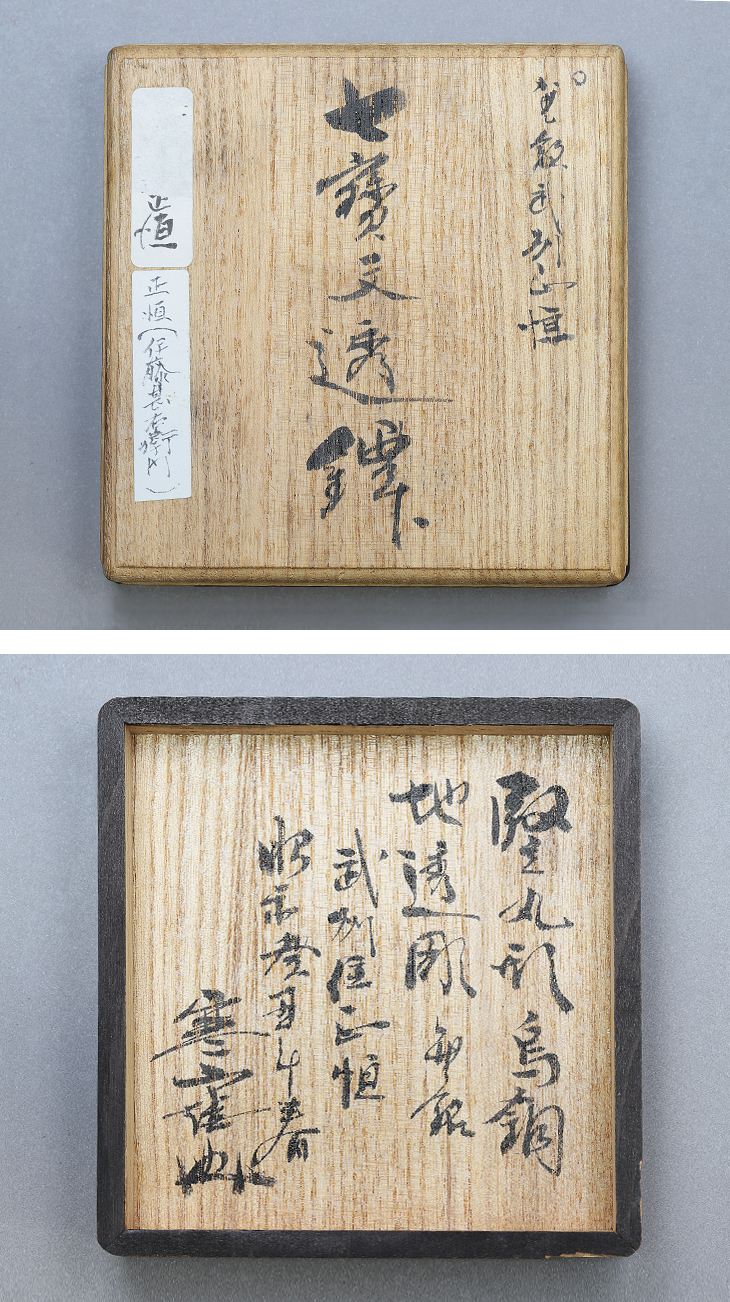 無銘武州正恒
七寳文透鐔
正恒
正恒(伊藤甚右衛門)
竪丸形烏銅
地透彫無銘
武州住正恒
昭和癸丑年春
寒山誌